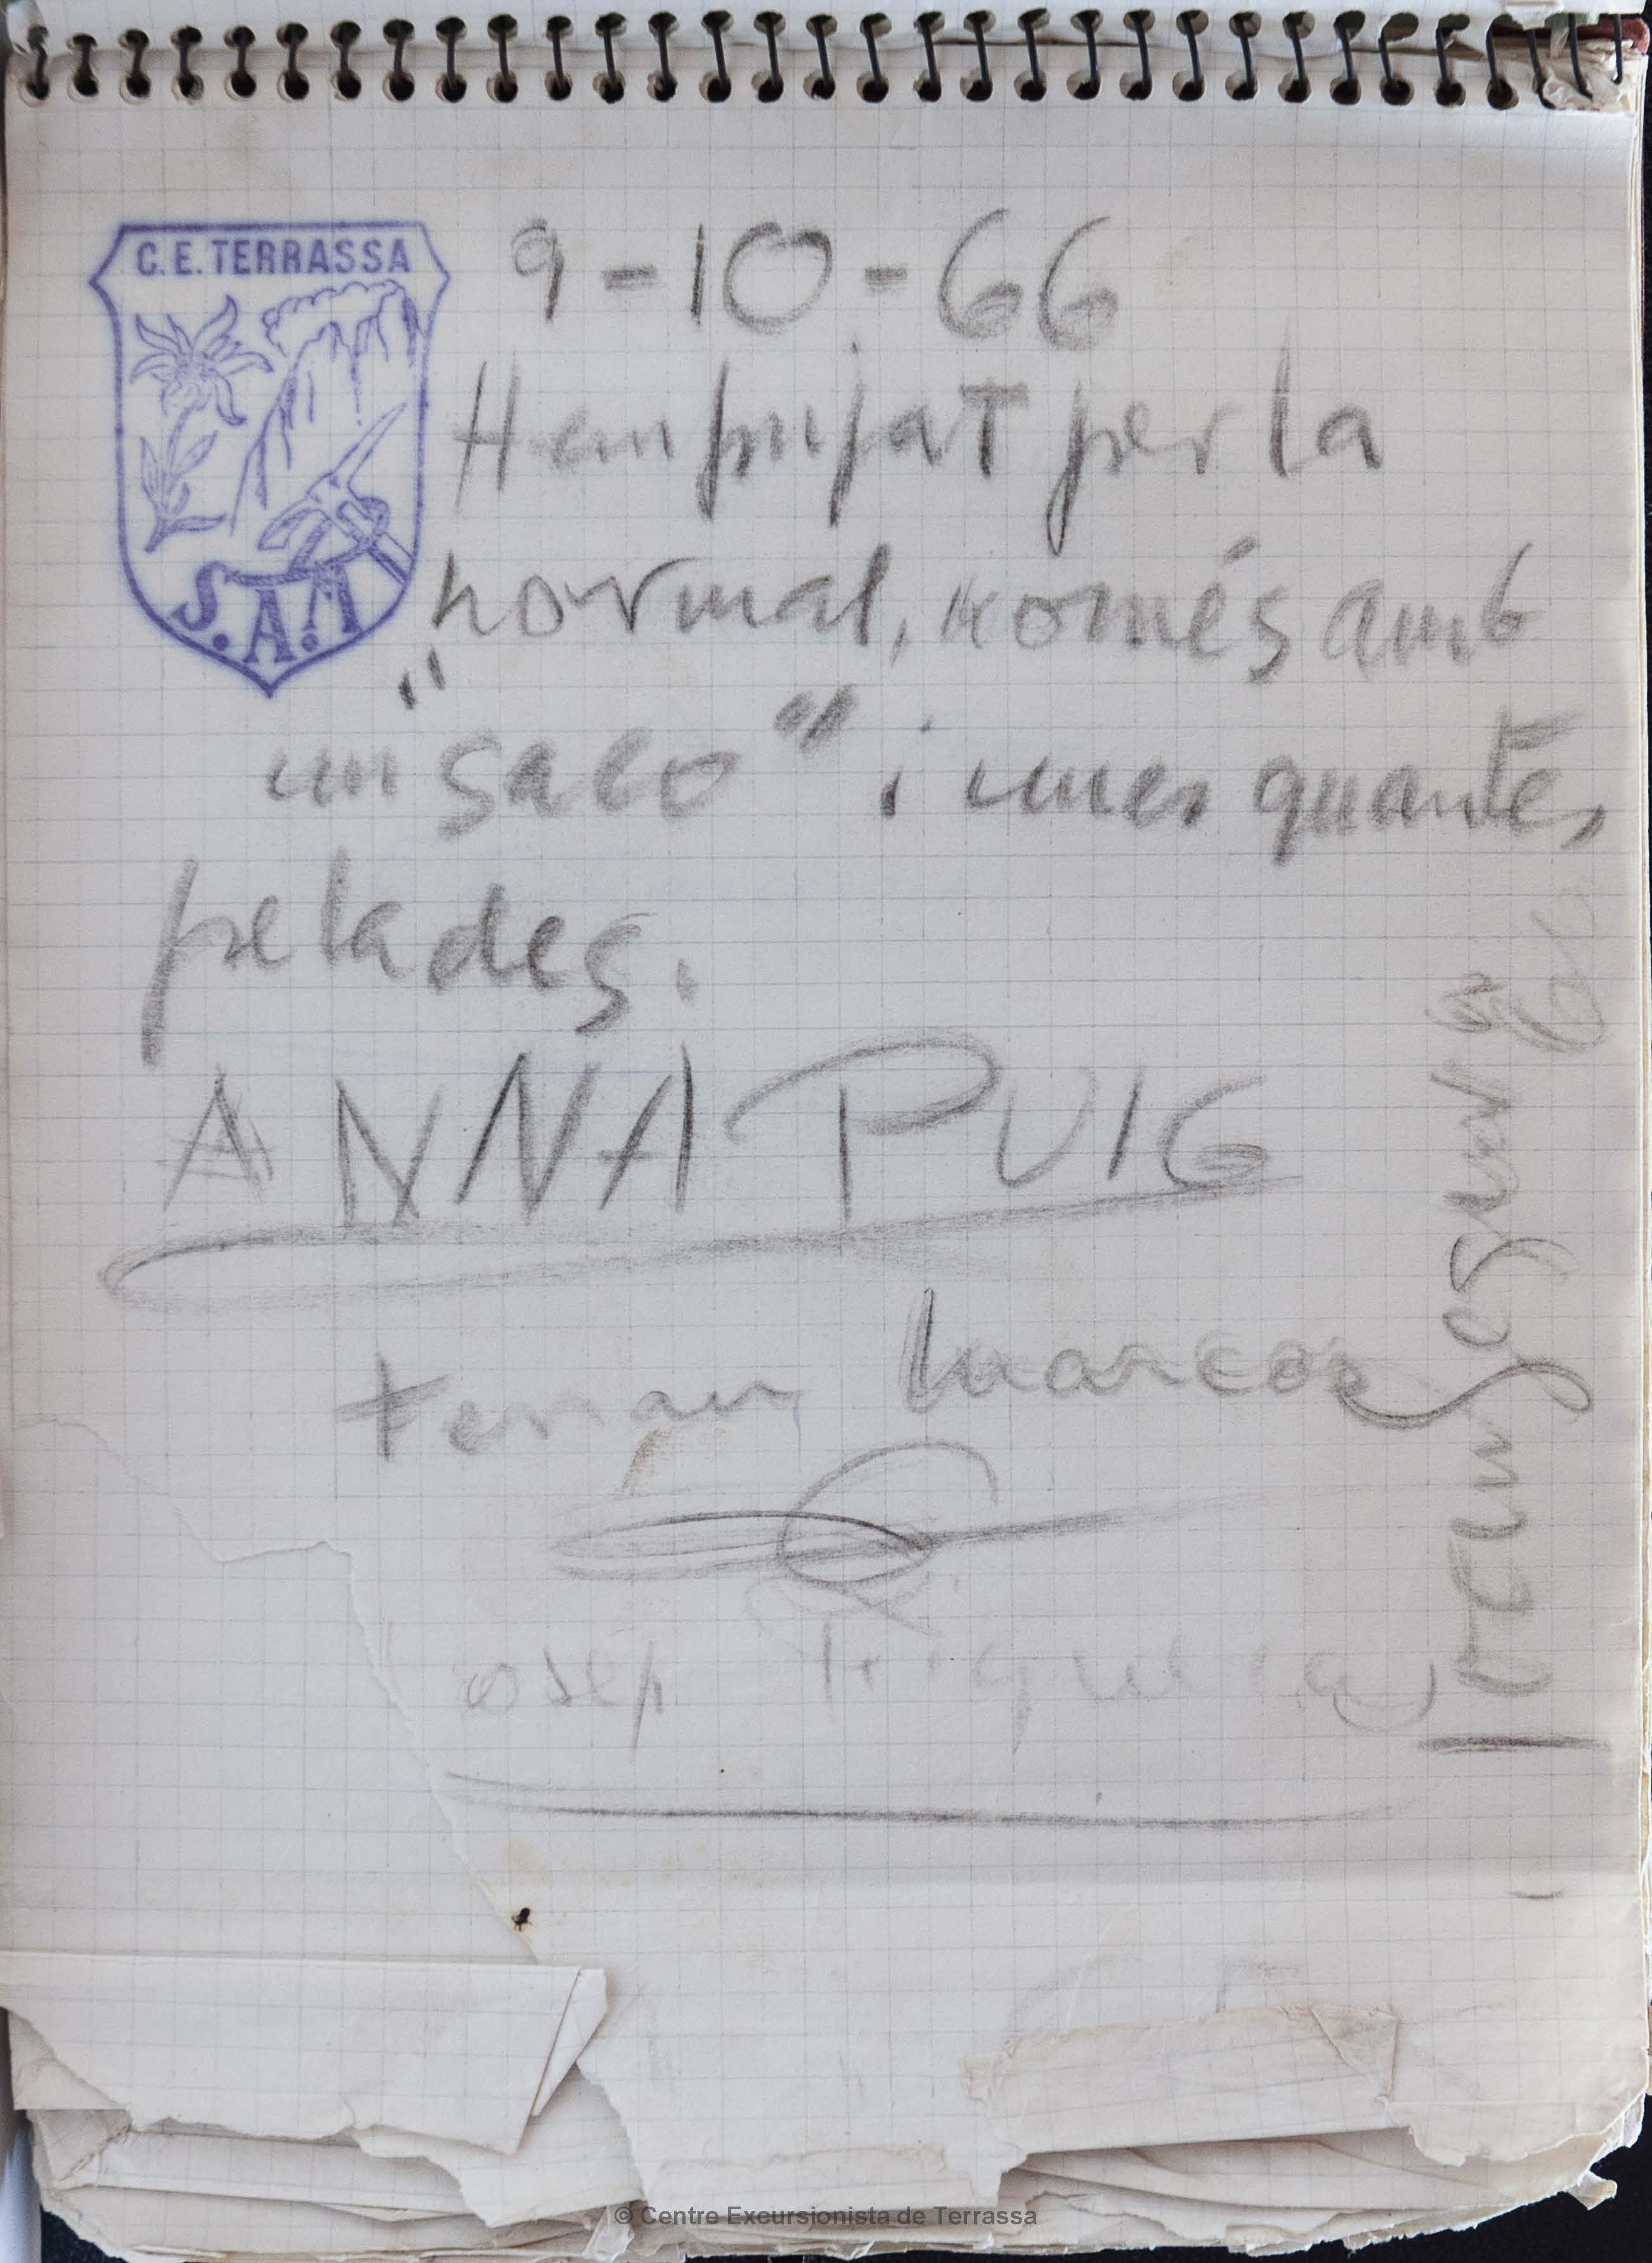 C. E. TERRASSA
S.A.M
9-10-66
Hem pujat per la
normal, només amb
un "saco" i unes quantes
pelades.
ANNA PUIG
Ferran Marcos
Josep
© Centre Excursionista de Terrassa